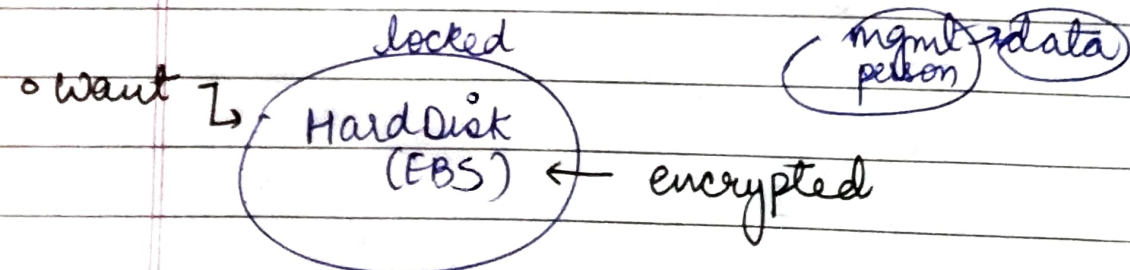 locked
mgmt → data
person
• want ↳
Hard Disk
(EBS) ← encrypted